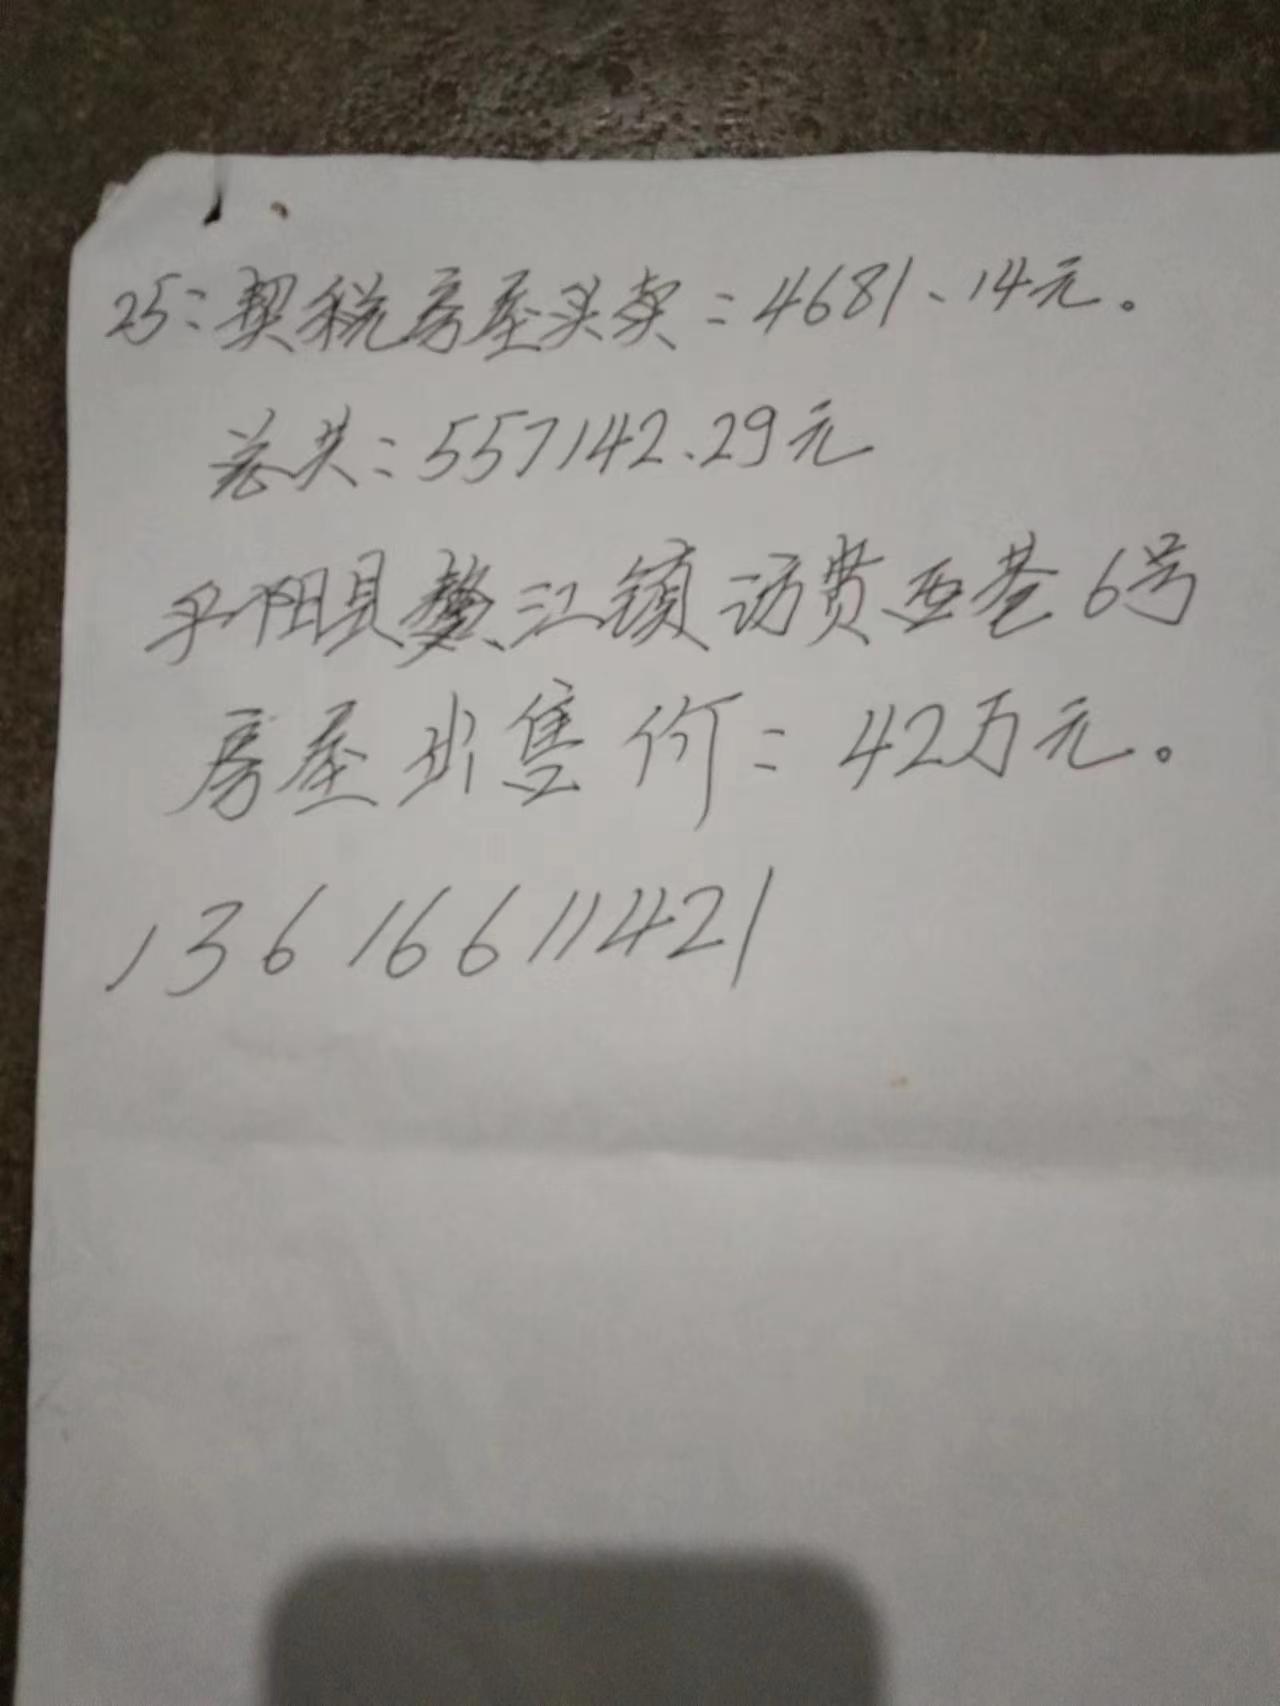 25:契税房屋买卖:4681、14元。
总共:557142.29元
平阳县鳌江镇访贤西巷6号
房屋出售价:42万元。
13616611421